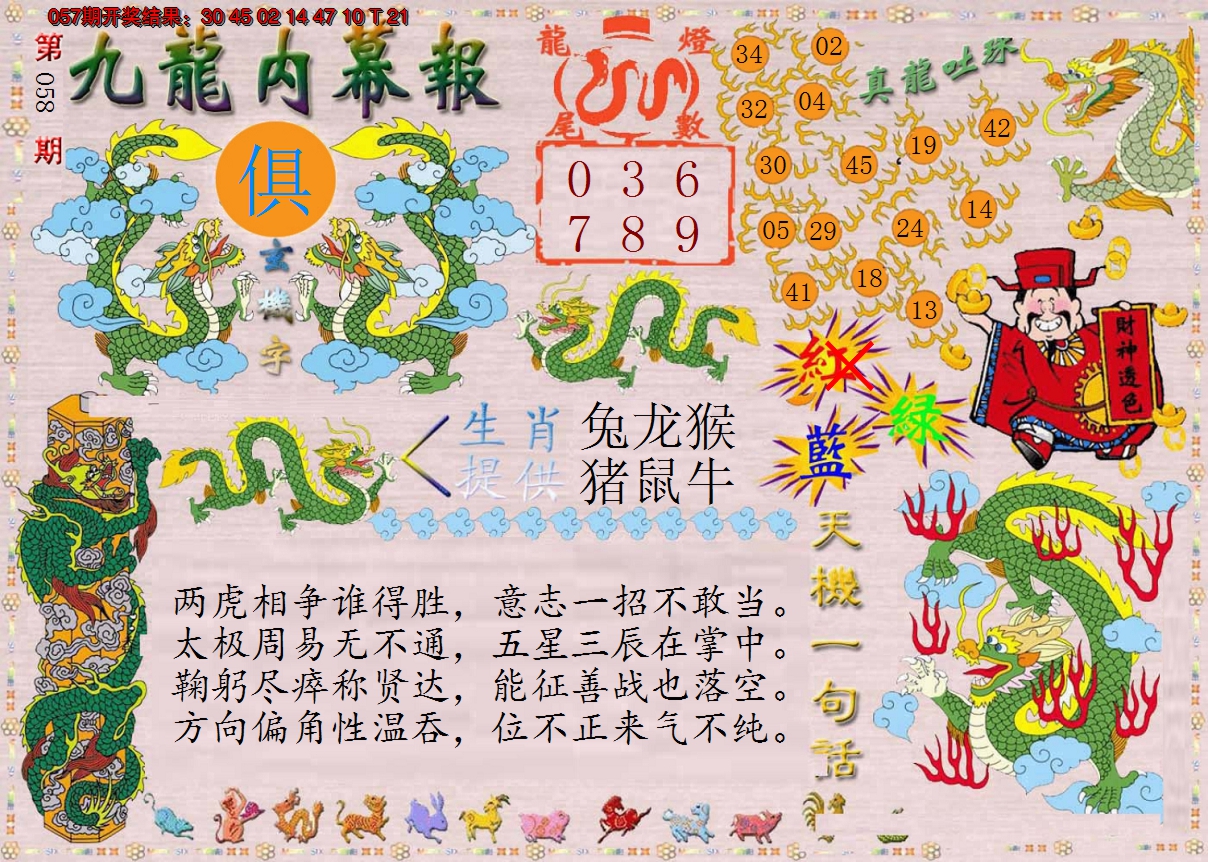 057期开奖结果：30 45 02 14 47 10 T 21
第058期
九龍内幕報
俱
玄機字
龍燈
尾數
0 3 6
7 8 9
真龍吐珠
34 02
32 04
19 42
30 45
14
05 29 24
18
41 13
財神透色
紅
綠
藍
生肖 兔龙猴
提供 猪鼠牛
天機一句话
两虎相争谁得胜，意志一招不敢当。
太极周易无不通，五星三辰在掌中。
鞠躬尽瘁称贤达，能征善战也落空。
方向偏角性温吞，位不正来气不纯。